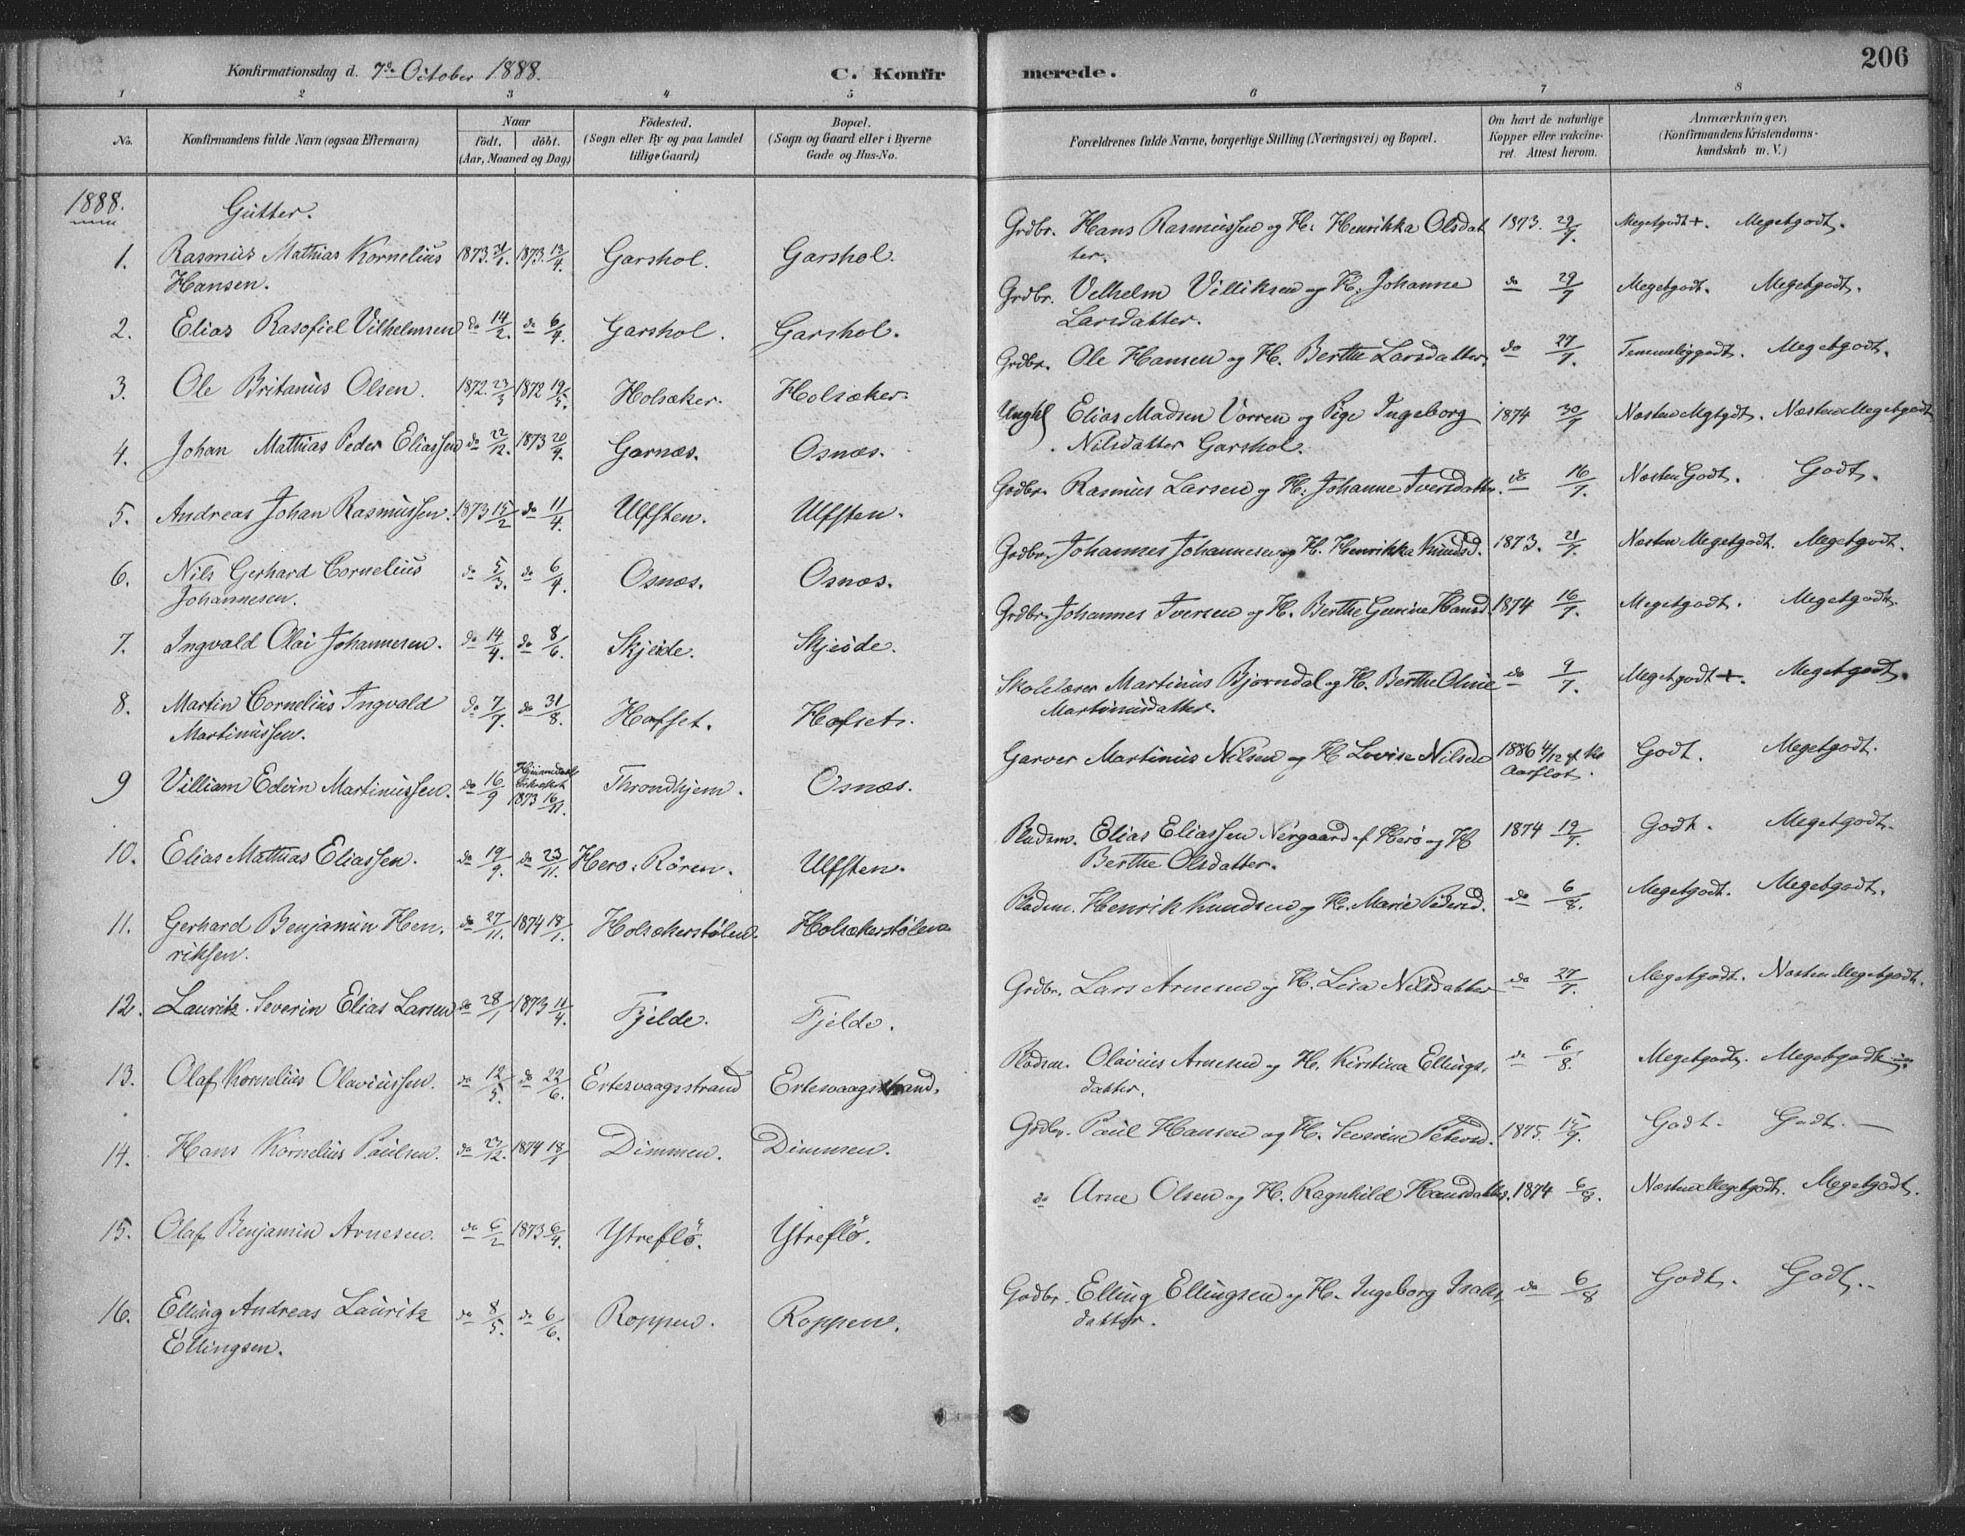 Konfirmationsdag d. 7de October 1888.
C. Konfir
1 2 3 4 5
No.
Konfirmandens fulde Navn (ogsaa Efternavn)
Naar
født. døbt.
(Aar, Maaned og Dag)
Fødested.
(Sogn eller By og paa Landet
tillige Gaard)
Bopæl.
(Sogn og Gaard eller i Byerne
Gade og Hus-No.
1888. Gutter.
1. Rasmus Mathias Kornelius 1873. 21/1. 1873. 13/4. Garshol. Garshol.
Hansen.
2. Elias Rasofiel Vilhelmsen do 14/2. do 6/4. Garshol. Garshol.
3. Ole Britanus Olsen. 1872. 23/3 1872 19/5. Holsæker. Holsæker.
4. Johan Mathias Peder Eliassen do 22/12. 1873 20/4. Garnæs. Osnæs.
5. Andreas Johan Rasmussen. 1873 15/2 do 11/4. Ulfsten. Ulfsten.
6. Nils Gerhard Cornelius do 5/3. do 6/4. Osnæs. Osnæs.
Johannesen.
7. Ingvald Olai Johannesen. do 14/4. do 8/6. Skjeide. Skjeide.
8. Martin Cornelius Ingvald do 7/7. do 31/8. Hofset. Hofset.
Martinussen.
9 Villiam Edvin Martinussen. do 16/9 1873 16/11. Throndhjem. Osnæs.
10. Elias Mathias Eliassen. do 19/9. do 23/11. Herø: Røren. Ulfsten.
11. Gerhard Benjamin Hen. do 27/11. 1874 18/1. Holsækerstølen. Holsækerstølen
riksen.
12. Lauritz Severin Elias Larsen do 28/1 1873 11/4. Fjelde. Fjelde.
13. Olaf Kornelius Olaviussen. do 12/5. do 22/6. Ertesvaagsstrand Ertesvaagsstrand.
14. Hans Kornelius Paulsen. do 23/12. 1874 18/1 Dimmen. Dimmen.
15. Olaf Benjamin Arnesen. do 6/2 1873 6/4. Ytreflö. Ytreflö.
16. Elling Andreas Lauritz do 8/5. do 6/6. Roppen. Roppen.
Ellingsen.
merede. 206
6 7 8
Forældrenes fulde Navne, borgerlige Stilling (Næringsvei) og Bopæl.
Om havt de naturlige
Kopper eller vakcine-
ret. Attest herom.
Anmærkninger.
(Konfirmandens Kristendoms-
kundskab m. V.)
Grdbr. Hans Rasmussen og H. Henrikka Olsdat 1873. 29/7. Megetgodt +. Megetgodt.
ter.
Grdbr. Velhelm Villiksen og H. Johanne do 29/7 Megetgodt. Megetgodt.
Larsdatter.
Grdbr. Ole Hansen og H. Berthe Larsdatter. do 27/7. Temmeliggodt. Megetgodt.
Ungkl Elias Madsen Vorren og Pige Ingeborg 1874 30/7 Næsten Mgtgdt. Næsten Megetgodt
Nilsdatter Garshol.
Grdbr. Rasmus Larsen og H. Johanne Iversdatter. do 16/7. Næsten Godt. Godt.
Grdbr. Johannes Johannesen og H. Henrikka Knudsd. 1873. 21/7. Næsten Megetgodt. Megetgodt.
Grdbr. Johannes Iversen og H. Berthe Gurine Hansd. 1874 16/7. Megetgodt. Megetgodt.
Skolelærer Martinus Bjørndal og H. Berthe Oline do 9/7. Megetgodt +. Megetgodt.
Martinusdatter.
Garver Martinus Nilsen og H Lovise Nilsd 1886 4/12 af Kr Godt. Megetgodt.
Aarflot.
Pladsm. Elias Eliassen Nergaard af Herø og H 1874 19/7. Godt. Megetgodt.
Berthe Olsdatter.
Pladsm. Henrik Knudsen og H. Marie Pedersd. do 6/8. Megetgodt. Megetgodt.
Grdbr. Lars Arnesen og H. Lisa Nilsdatter do 27/7. Megetgodt. Næsten Megetgodt.
Pladsm. Olavius Arnesen og H. Kirstina Ellings, do 6/8. Megetgodt. Megetgodt
datter.
Grdbr. Paul Hansen og H. Severine Petersd. 1875. 15/9. Godt. Godt.
do Arne Olsen og H. Ragnhild Hansdatter. 1874 6/8. Næsten Megetgodt. Megetgodt.
Grdbr. Elling Ellingsen og H. Ingeborg Isaks, do 6/8 Godt. Godt.
datter.